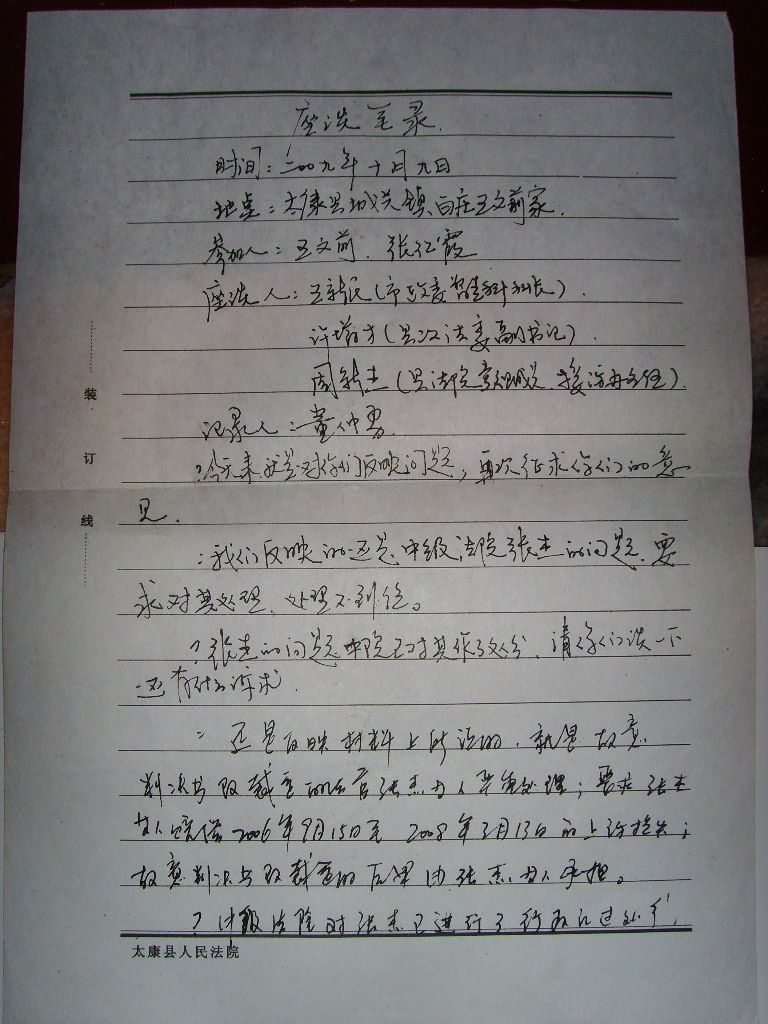 座谈笔录.
时间：二00九年十月九日
地点：太康县城关镇白庄王文前家.
参加人：王文前. 张红霞
座谈人：王新民(市政委督查科科长).
许增方(县政法委副书记).
周新杰(县法院党组成员.接访办主任).
记录人：董仲勇.
?今天来就是对你们反映问题，再次征求你们的意
见.
：我们反映的还是中级法院张杰的问题.要
求对其处理.处理不到位。
?张杰的问题中院已对其作了处分.请你们谈一下
还有什么诉求.
：还是反映材料上所说的.就是故意
判决书 张杰 人 处理；要求张杰
本人赔偿2006年9月15日至2008年3月13日的上访损失；
故意判决书 的后果由张杰本人承担。
?中级法院对张杰已进行了行政记过处分,
装
订
线
太康县人民法院